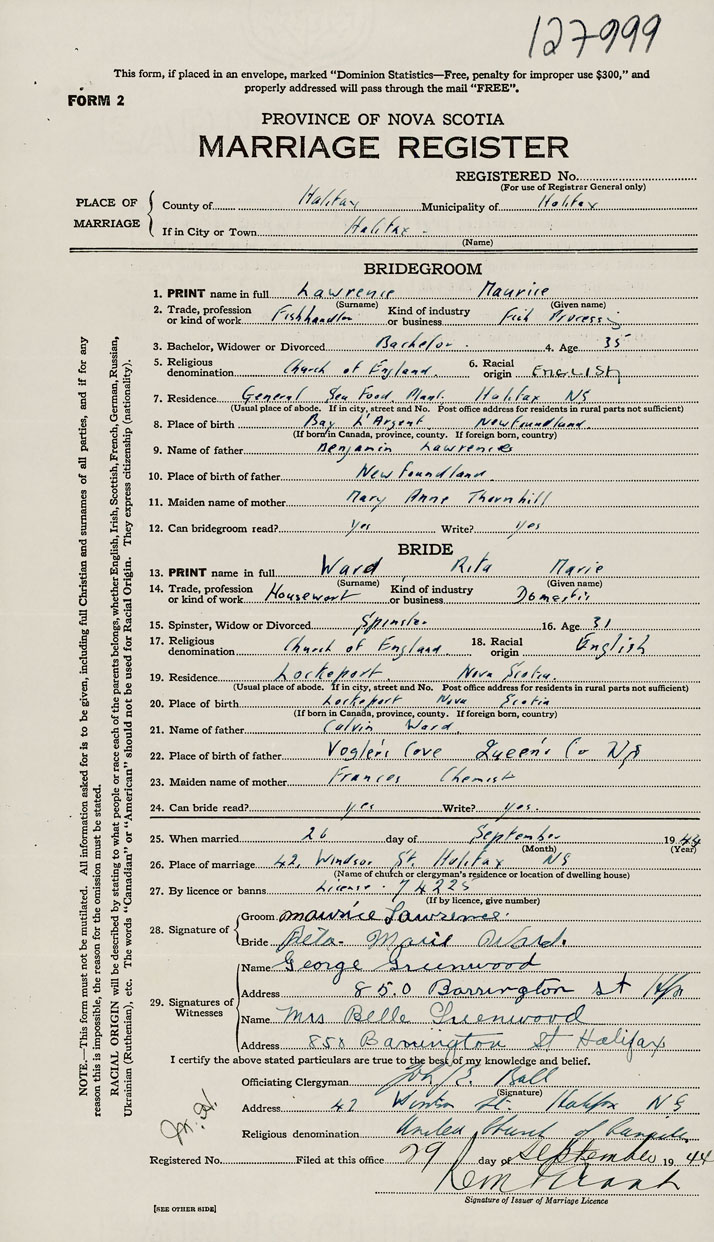 127999
This form, if placed in an envelope, marked "Dominion Statistics—Free, penalty for improper use $300," and
properly addressed will pass through the mail "FREE".
FORM 2
PROVINCE OF NOVA SCOTIA
MARRIAGE REGISTER
REGISTERED No.
(For use of Registrar General only)
PLACE OF MARRIAGE
County of Halifax Municipality of Halifax
If in City or Town Halifax
(Name)
BRIDEGROOM
1. PRINT name in full Lawrence Maurice
(Surname) (Given name)
2. Trade, profession or kind of work Fishhandler Kind of industry or business Fish Processing
3. Bachelor, Widower or Divorced Bachelor. 4. Age 35
5. Religious denomination Church of England. 6. Racial origin English
7. Residence General Sea Food Plant. Halifax NS
(Usual place of abode. If in city, street and No. Post office address for residents in rural parts not sufficient)
8. Place of birth Bay L'Argent Newfoundland.
(If born in Canada, province, county. If foreign born, country)
9. Name of father Benjamin Lawrence
10. Place of birth of father Newfoundland.
11. Maiden name of mother Mary Anne Thornhill
12. Can bridegroom read? yes Write? yes
BRIDE
13. PRINT name in full Ward Rita Marie
(Surname) (Given name)
14. Trade, profession or kind of work Housework Kind of industry or business Domestic
15. Spinster, Widow or Divorced Spinster 16. Age 31
17. Religious denomination Church of England 18. Racial origin English
19. Residence Lockeport. Nova Scotia.
(Usual place of abode. If in city, street and No. Post office address for residents in rural parts not sufficient)
20. Place of birth Lockeport Nova Scotia
(If born in Canada, province, county. If foreign born, country)
21. Name of father Calvin Ward.
22. Place of birth of father Vogler's Cove Queen's Co NS
23. Maiden name of mother Frances Chemist
24. Can bride read? yes Write? yes.
25. When married 26 day of September 1944
(Month) (Year)
26. Place of marriage 42 Windsor St. Halifax NS
(Name of church or clergyman's residence or location of dwelling house)
27. By licence or banns License. 74225
(If by licence, give number)
28. Signature of
Groom Maurice Lawrence.
Bride Rita Marie Ward.
29. Signatures of Witnesses
Name George Greenwood
Address 850 Barrington St Hfx
Name Mrs Belle Greenwood
Address 850 Barrington St Halifax
I certify the above stated particulars are true to the best of my knowledge and belief.
Officiating Clergyman John E. Ball
(Signature)
Address 42 Windsor St. Halifax NS
Religious denomination United Church of Canada
Registered No. Filed at this office 29 day of September 1944
Signature of Issuer of Marriage Licence
[SEE OTHER SIDE]
NOTE.—This form must not be mutilated. All information asked for is to be given, including full Christian and surnames of all parties, and if for any
reason this is impossible, the reason for the omission must be stated.
RACIAL ORIGIN will be described by stating to what people or race each of the parents belongs, whether English, Irish, Scottish, French, German, Russian,
Ukrainian (Ruthenian), etc. The words "Canadian" or "American" should not be used for Racial Origin. They express citizenship (nationality).